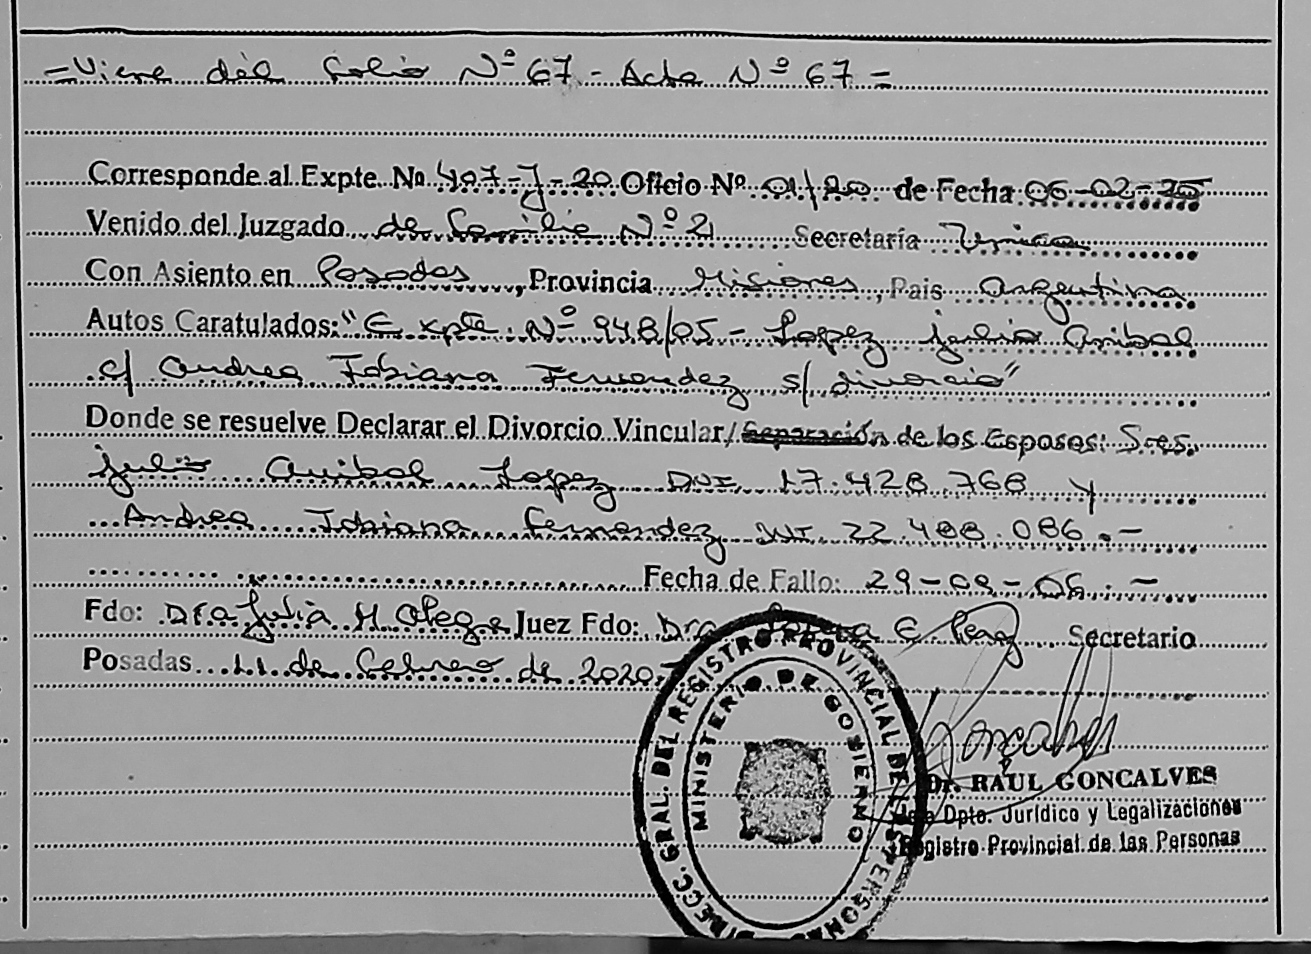 - Viene del folio Nº 67 - Acta Nº 67 -
Corresponde al Expte. Nº 407-J-20 Oficio Nº 01/20 de Fecha 06-02-20
Venido del Juzgado de Familia Nº 2 Secretaría Unica
Con Asiento en Posadas, Provincia Misiones, Pais Argentina
Autos Caratulados: "Expte. Nº 948/05 - Lopez Julio Anibal
c/ Andrea Fabiana Fernandez s/ divorcio"
Donde se resuelve Declarar el Divorcio Vincular/Separación de los Esposos: Sres.
Julio Anibal Lopez DNI 17.428.768 y
Andrea Fabiana Fernandez DNI 22.488.086.-
Fecha de Fallo: 29-09-06.-
Fdo: Dra Julia H. Alegre Juez Fdo: Dra. E. Perez Secretario
Posadas 11 de febrero de 2020.-
DIRECC. GRAL. DEL REGISTRO PROVINCIAL DE LAS PERSONAS
MINISTERIO DE GOBIERNO
Goncalves
Dr. RAUL GONCALVES
Jefe Dpto. Jurídico y Legalizaciones
Registro Provincial de las Personas